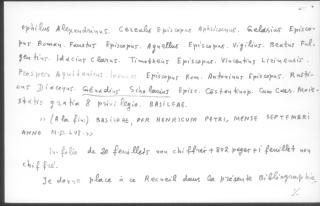 ophilus Alexandrinus. Cerealis Episcopus Aphricanus. Gelasius Episco-
pus Roman. Faustus Episcopus. Agnellus Episcopus. Vigilius. Beatus Ful-
gentius. Idacius Clarus. Timotheus Episcopus. Vincentius Lirinensis.
Prosper Aquitanicus. Ioannes Episcopus Rom. Antoninus Episcopus. Rusti-
cus Diaconus. Génadius Scholarius Episc. Costantinop. Cum Caes. Maie-
statis gratia & privilegio. BASILEAE.
» (A la fin) BASILEAE, PER HENRICUM PETRI, MENSE SEPTEMBRI
ANNO M.D.LVI. »
In-folio de 20 feuillets non chiffrés + 802 pages + 1 feuillet non
chiffré.
Je donne place à ce Recueil dans la présente Bibliographie